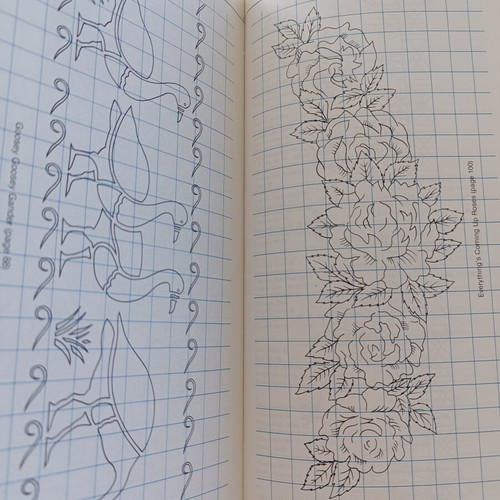 Goosey Goosey Gander (page 68)
Everything's Coming Up Roses (page 100)